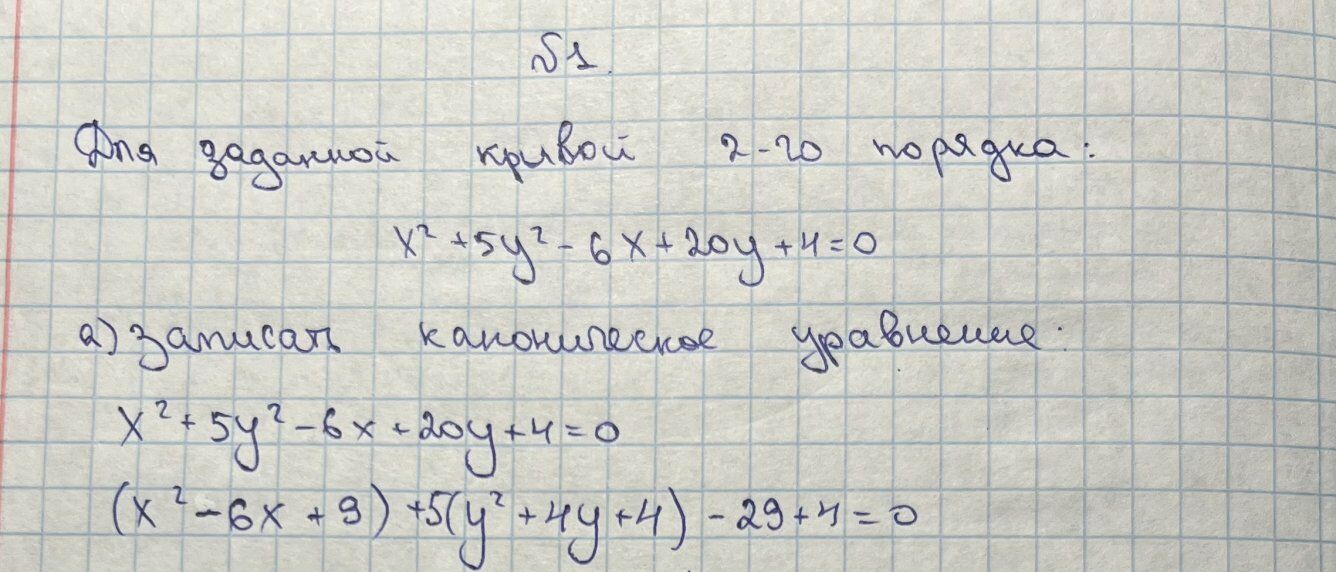 №1.
Для заданной кривой 2-го порядка:
x² + 5y² - 6x + 20y + 4 = 0
а) Записать каноническое уравнение:
x² + 5y² - 6x + 20y + 4 = 0
(x² - 6x + 9) + 5(y² + 4y + 4) - 29 + 4 = 0